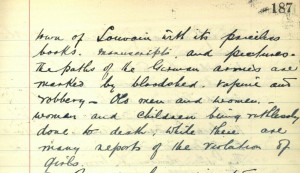 187
town of Louvain with its priceless
books, manuscripts, and pictures.
The paths of the German armies are
marked by bloodshed, rapine and
robbery — old men and women,
woman and children being ruthlessly
done to death, while there are
many reports of the violation of
girls.